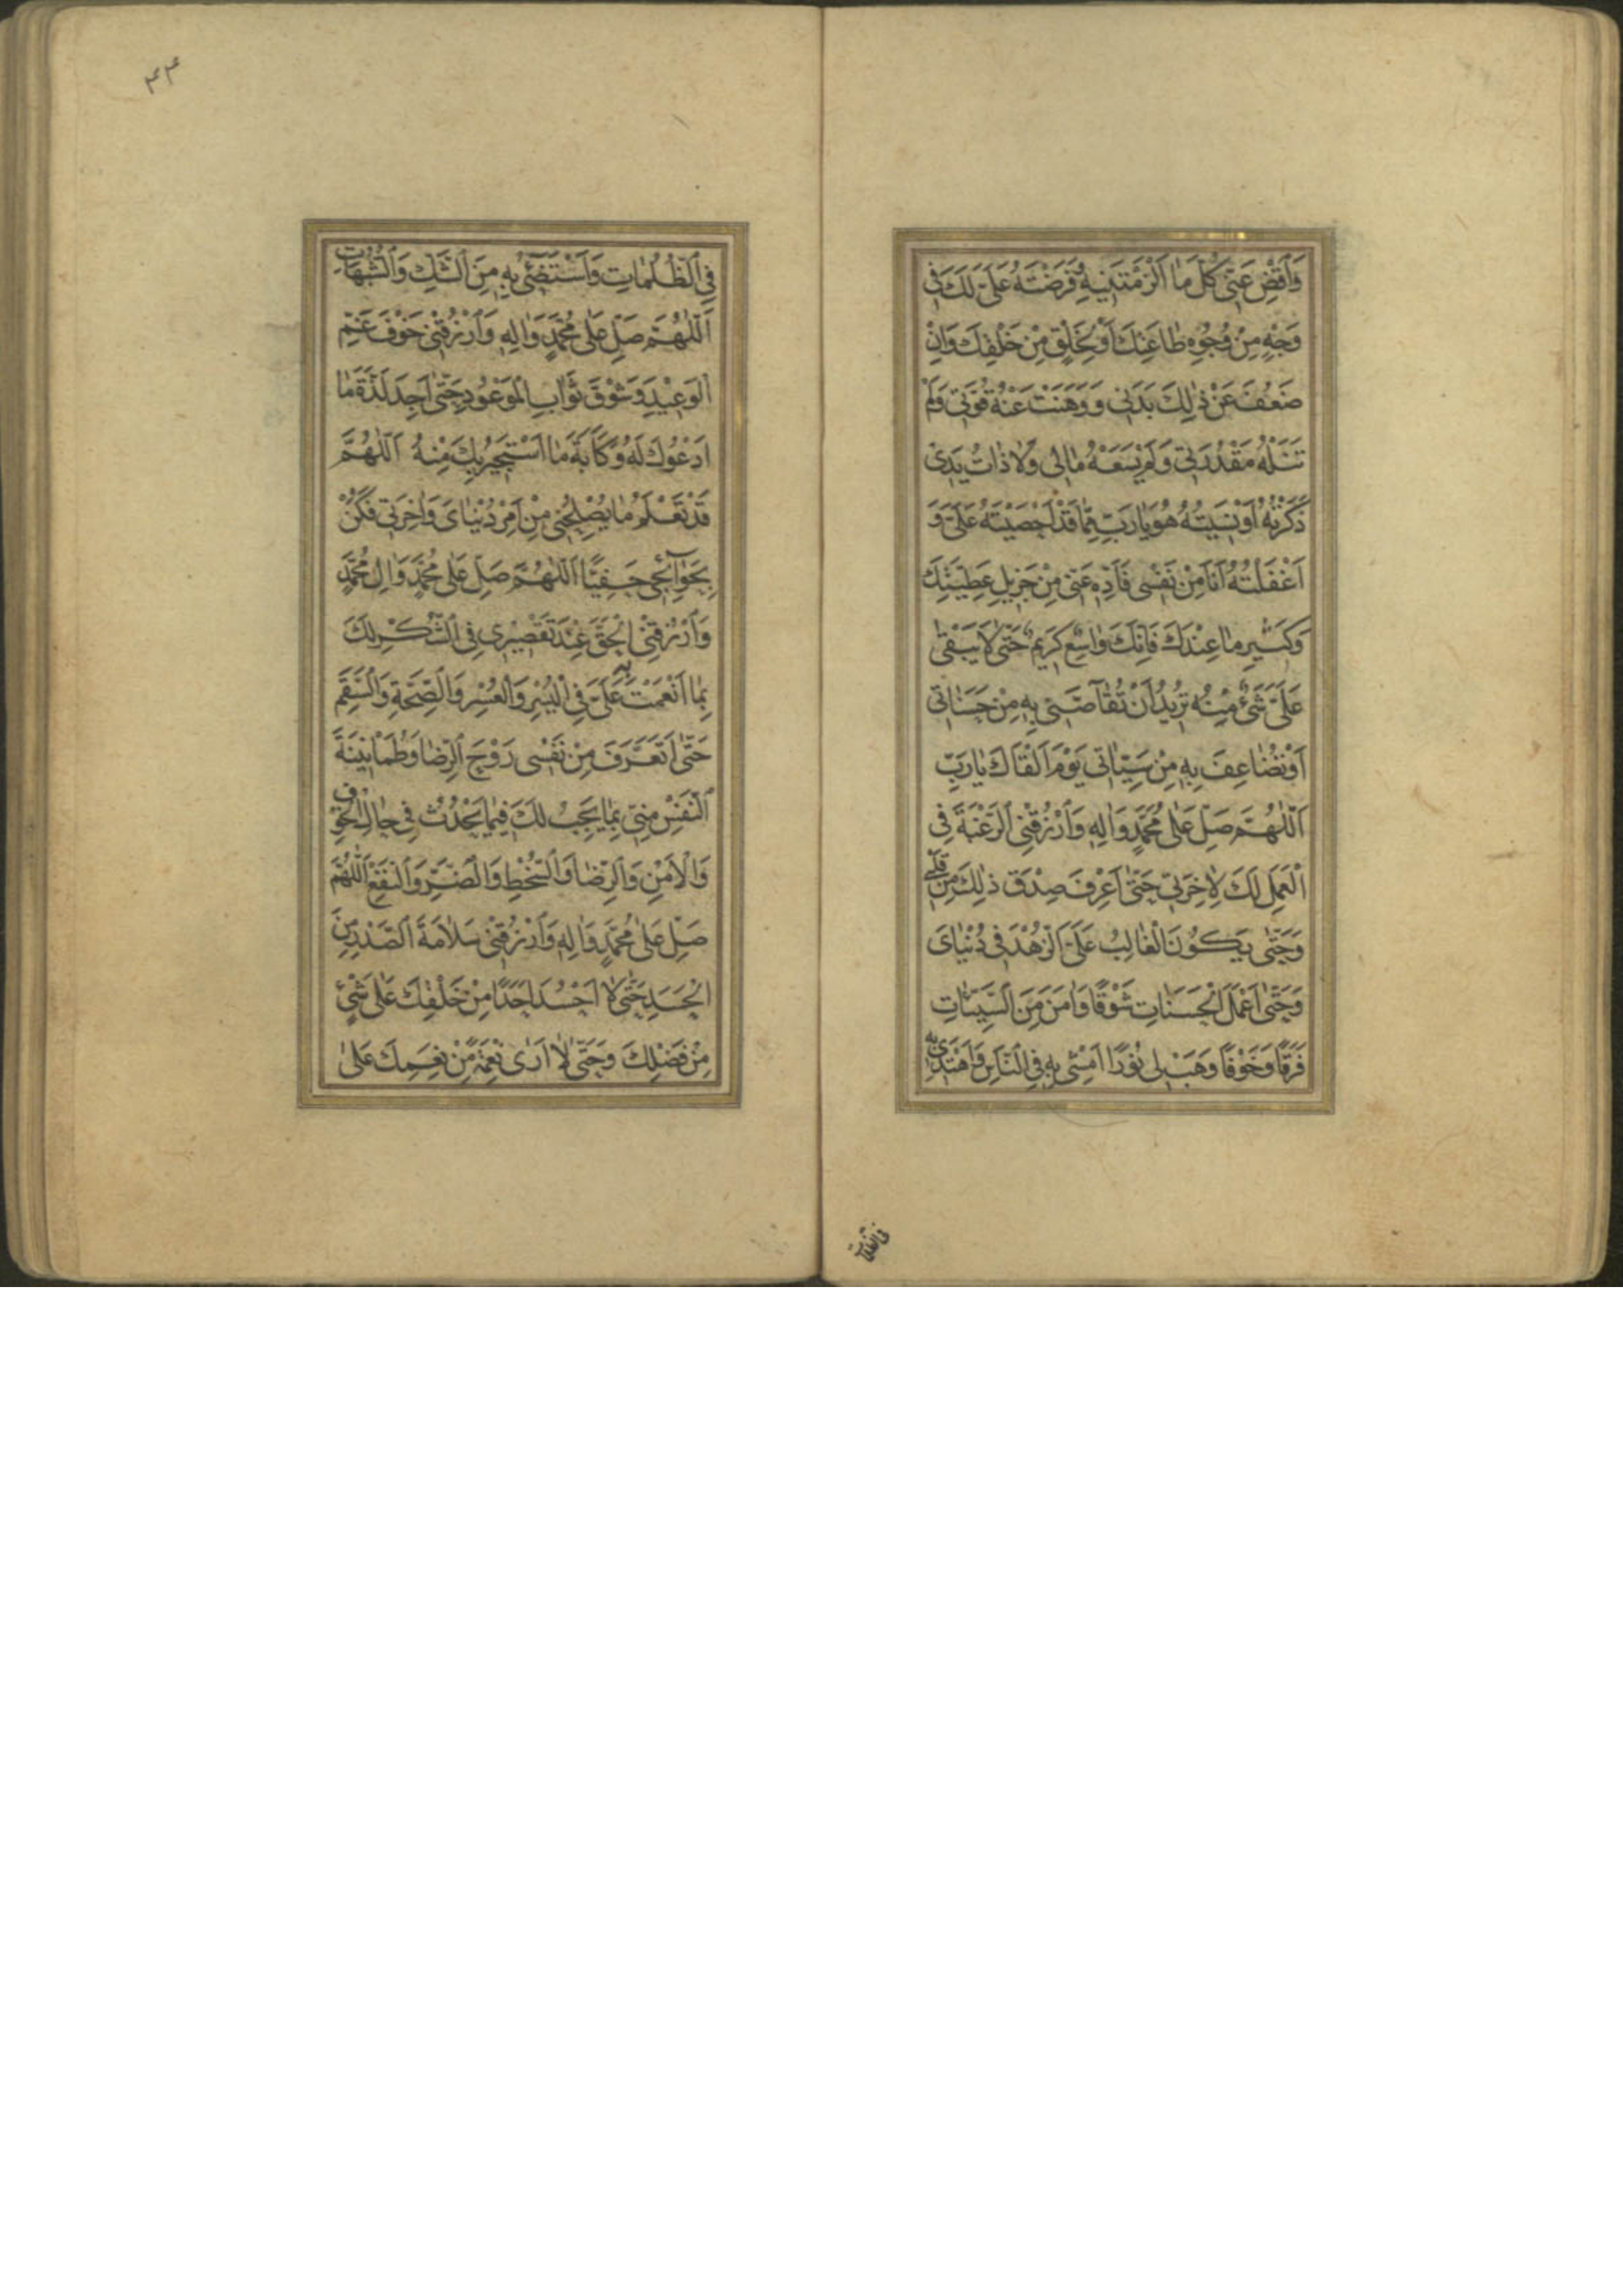 وَاَقْضِ عَنّى كُلَّ مٰا اَلْزَمْتَنيهِ وَفَرَضْتَهُ عَلَىَّ لَكَ فى
وَجْهٍ مِنْ وُجُوهِ طٰاعَتِكَ اَوْ لِخَلْقٍ مِنْ خَلْقِكَ وَاِنْ
ضَعُفَ عَنْ ذٰلِكَ بَدَنى وَوَهَنَتْ عَنْهُ قُوَّتى وَلَمْ
تَنَلْهُ مَقْدُرَتى وَلَمْ يَسَعْهُ مٰالى وَلاٰ ذٰاتُ يَدى
ذَكَرْتُهُ اَوْ نَسيتُهُ هُوَ يٰا رَبِّ مِمّٰا قَدْ اَحْصَيْتَهُ عَلَىَّ وَ
اَغْفَلْتُهُ اَنَا مِنْ نَفْسى فَاَدِّهِ عَنّى مِنْ جَزيلِ عَطِيَّتِكَ
وَكَثيرِ مٰا عِنْدَكَ فَاِنَّكَ وٰاسِعٌ كَريمٌ حَتّٰى لاٰ يَبْقٰى
عَلَىَّ شَىْءٌ مِنْهُ تُريدُ اَنْ تُقٰآصَّنى بِهِ مِنْ حَسَنٰاتى
اَوْ تُضٰاعِفَ بِهِ مِنْ سَيِّئٰاتى يَوْمَ اَلْقٰاكَ يٰا رَبِّ
اَللّٰهُمَّ صَلِّ عَلٰى مُحَمَّدٍ وَاٰلِهِ وَاَرْزُقْنِى اَلرَّغْبَةَ فى
اَلْعَمَلِ لَكَ لِاٰخِرَتى حَتّٰى اَعْرِفَ صِدْقَ ذٰلِكَ مِنْ قَلْبى
وَحَتّٰى يَكُونَ الْغٰالِبُ عَلَىَّ اَلزُّهْدَ فى دُنْيٰاىَ
وَحَتّٰى اَعْمَلَ اَلْحَسَنٰاتِ شَوْقًا وَاٰمَنَ مِنَ اَلسَّيِّئٰاتِ
فَرَقًا وَخَوْفًا وَهَبْ لى نُورًا اَمْشى بِهِ فِى اَلنّٰاسِ وَاَهْتَدى بِهِ
فى الظلمات
٤٤
فِى اَلظُّلُمٰاتِ وَاَسْتَضيٓىءُ بِهِ مِنَ اَلشَّكِّ وَالشُّبُهٰاتِ
اَللّٰهُمَّ صَلِّ عَلٰى مُحَمَّدٍ وَاٰلِهِ وَاَرْزُقْنى خَوْفَ غَمِّ
اَلْوَعيدِ وَشَوْقَ ثَوٰابِ اَلْمَوْعُودِ حَتّٰى اَجِدَ لَذَّةَ مٰا
اَدْعُوكَ لَهُ وَكَاٰبَةَ مٰا اَسْتَجيرُ بِكَ مِنْهُ اَللّٰهُمَّ
قَدْ تَعْلَمُ مٰا يُصْلِحُنى مِنْ اَمْرِ دُنْيٰاىَ وَاٰخِرَتى فَكُنْ
بِحَوٰآئِجى حَفِيًّا اَللّٰهُمَّ صَلِّ عَلٰى مُحَمَّدٍ وَاٰلِ مُحَمَّدٍ
وَاَرْزُقْنِى اَلْحَقَّ عِنْدَ تَقْصيرى فِى اَلشُّكْرِ لَكَ
بِمٰا اَنْعَمْتَ بِهِ عَلَىَّ فِى اَلْيُسْرِ وَاَلْعُسْرِ وَاَلصِّحَّةِ وَاَلسَّقَمِ
حَتّٰى اَتَعَرَّفَ مِنْ نَفْسى رَوْحَ اَلرِّضٰا وَطُمَأْنينَةَ
اَلنَّفْسِ مِنّى بِمٰا يَجِبُ لَكَ فيمٰا يَحْدُثُ فى حٰالِ الْخَوْفِ
وَالْاَمْنِ وَاَلرِّضٰا وَاَلسُّخْطِ وَاَلضَّرِّ وَاَلنَّفْعِ اَللّٰهُمَّ
صَلِّ عَلٰى مُحَمَّدٍ وَاٰلِهِ وَاَرْزُقْنى سَلاٰمَةَ اَلصَّدْرِ مِنَ
اَلْحَسَدِ حَتّٰى لاٰ اَحْسُدَ اَحَدًا مِنْ خَلْقِكَ عَلٰى شَىْءٍ
مِنْ فَضْلِكَ وَحَتّٰى لاٰ اَرٰى نِعْمَةً مِنْ نِعَمِكَ عَلٰى